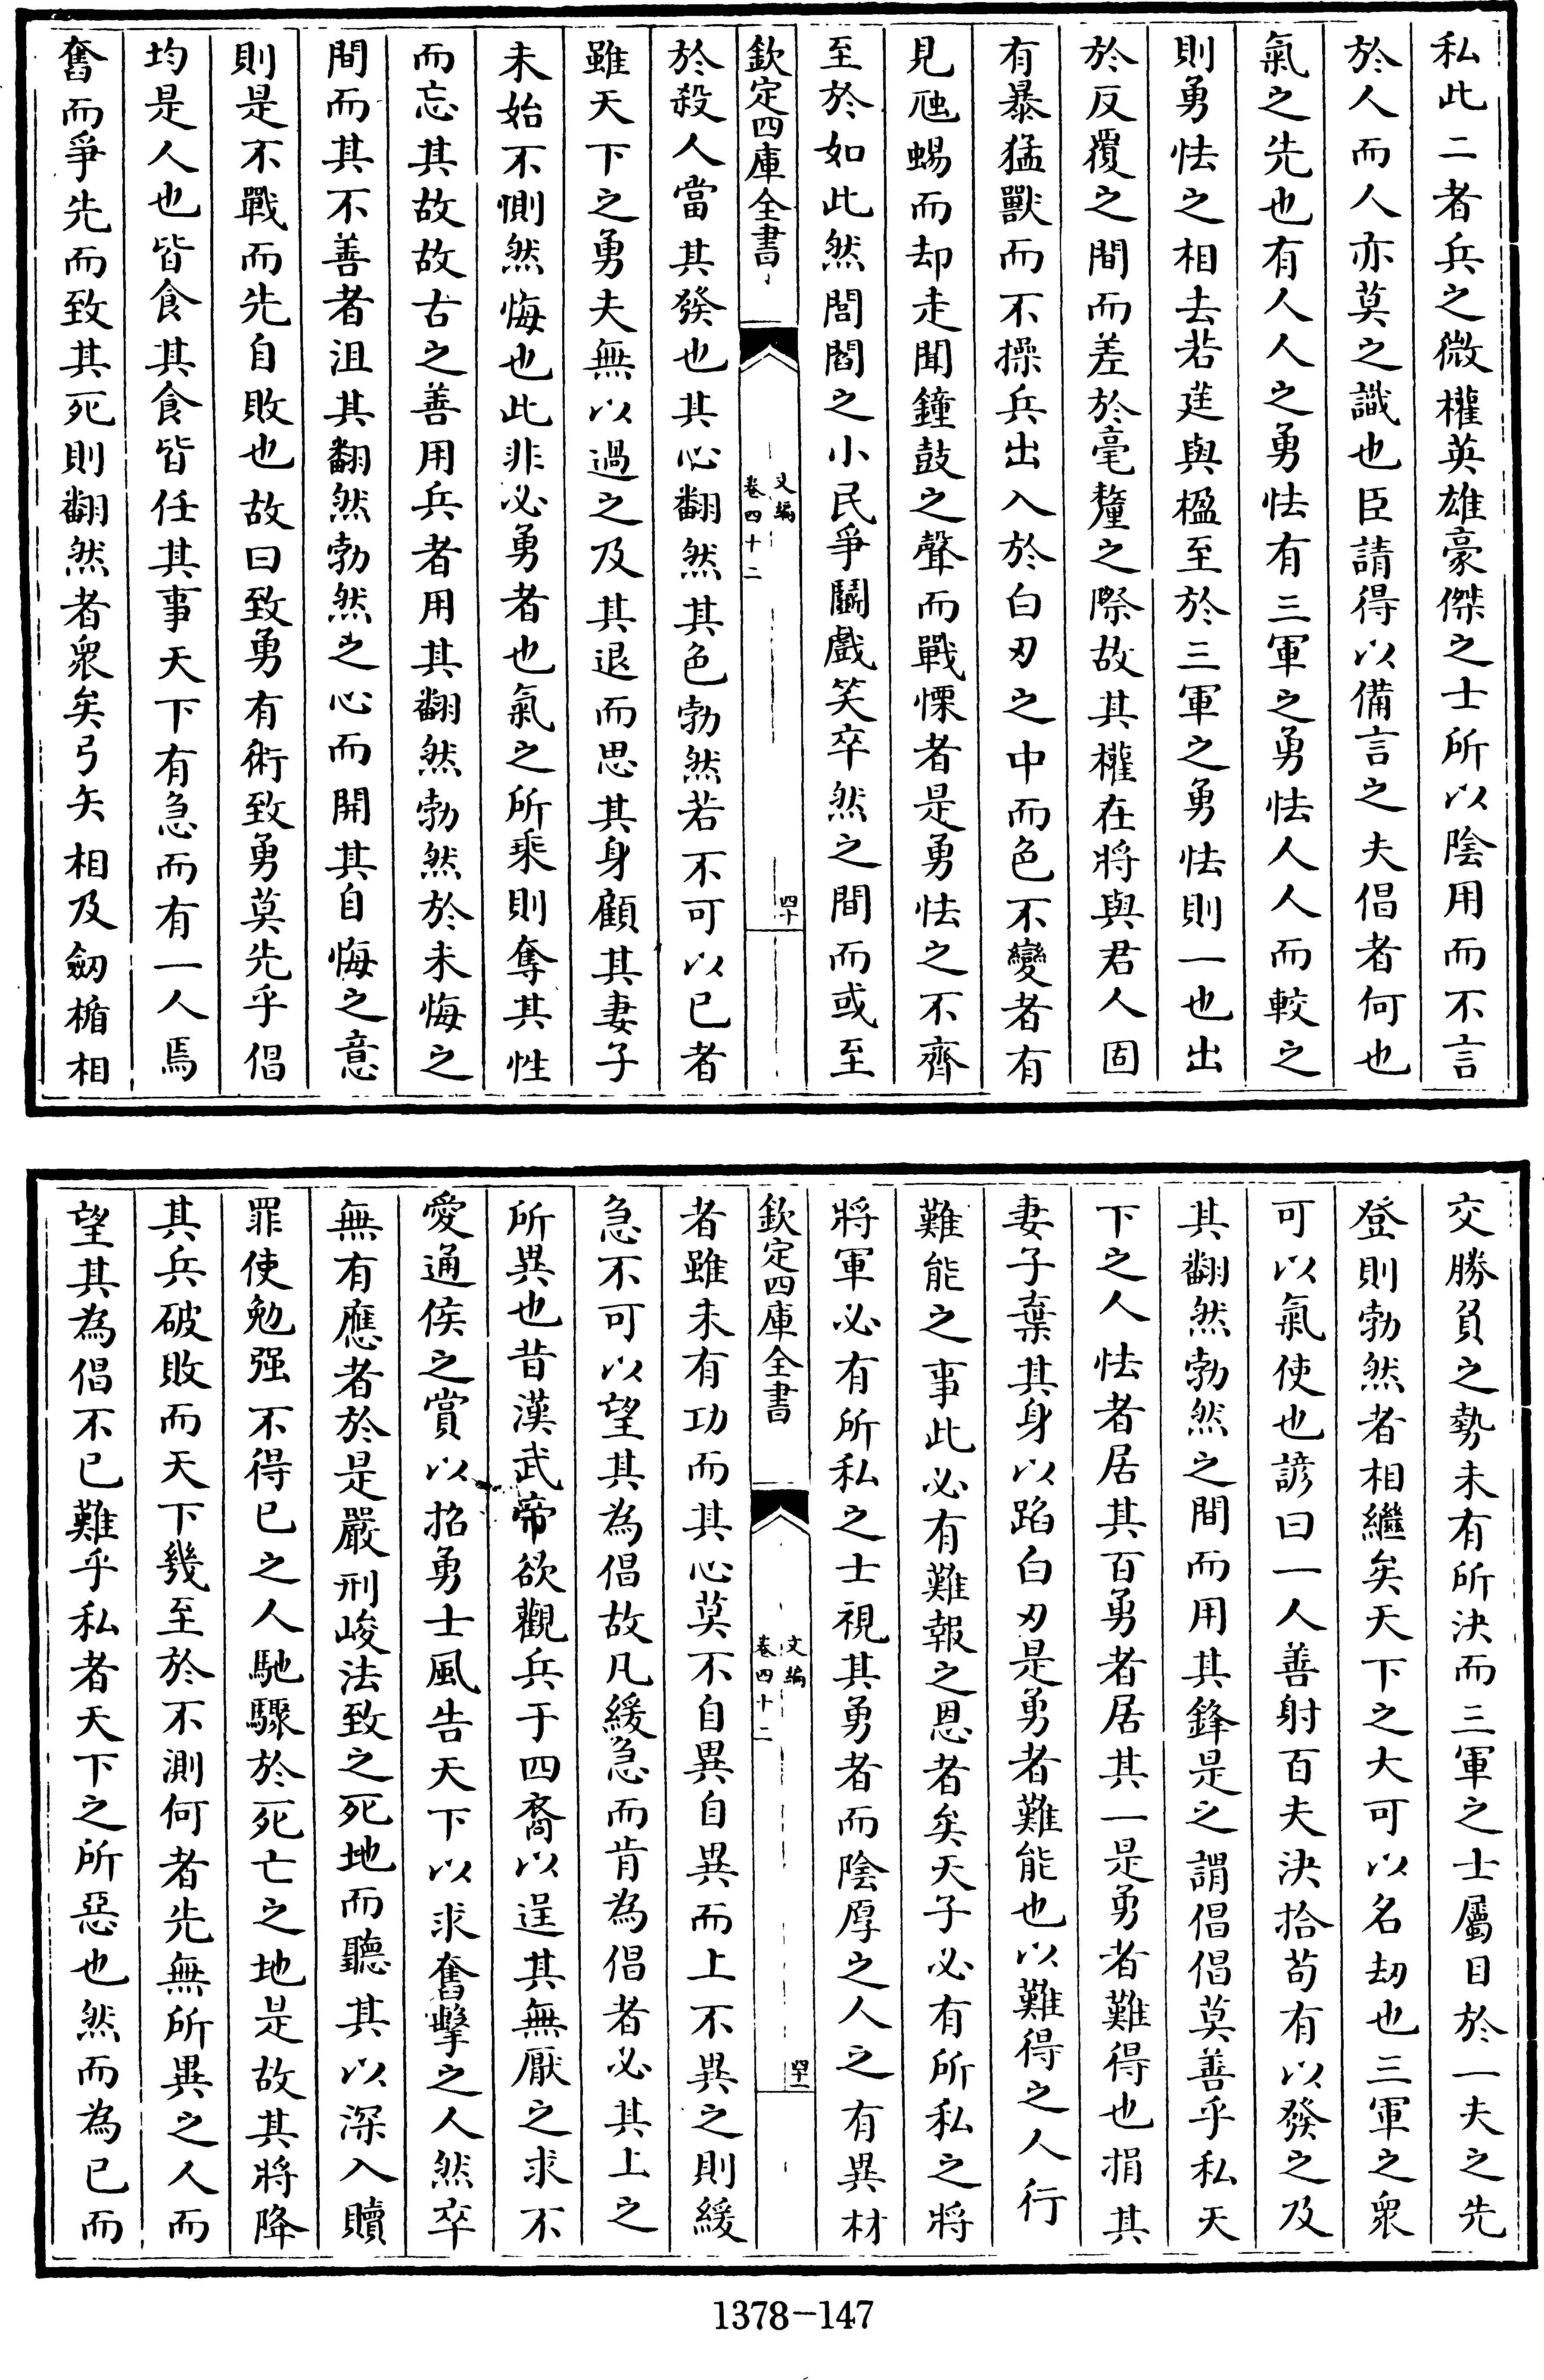 私此二者兵之微權英雄豪傑之士所以陰用而不言
於人而人亦莫之識也臣請得以備言之夫倡者何也
氣之先也有人人之勇怯有三軍之勇怯人人而較之
則勇怯之相去若莛與楹至於三軍之勇怯則一也出
於反覆之間而差於毫釐之際故其權在將與君人固
有暴猛獸而不操兵出入於白刃之中而色不變者有
見虺蜴而却走聞鐘鼓之聲而戰慄者是勇怯之不齊
至於如此然閭閻之小民爭鬭戲笑卒然之間而或至
欽定四庫全書
文編
卷四十二
四十
於殺人當其發也其心翻然其色勃然若不可以已者
雖天下之勇夫無以過之及其退而思其身顧其妻子
未始不惻然悔也此非必勇者也氣之所乘則奪其性
而忘其故故古之善用兵者用其翻然勃然於未悔之
間而其不善者沮其翻然勃然之心而開其自悔之意
則是不戰而先自敗也故曰致勇有術致勇莫先乎倡
均是人也皆食其食皆任其事天下有急而有一人焉
奮而爭先而致其死則翻然者衆矣弓矢相及劒楯相
交勝負之勢未有所決而三軍之士屬目於一夫之先
登則勃然者相繼矣天下之大可以名刼也三軍之衆
可以氣使也諺曰一人善射百夫決拾苟有以發之及
其翻然勃然之間而用其鋒是之謂倡倡莫善乎私天
下之人怯者居其百勇者居其一是勇者難得也捐其
妻子棄其身以蹈白刃是勇者難能也以難得之人行
難能之事此必有難報之恩者矣天子必有所私之將
將軍必有所私之士視其勇者而陰厚之人之有異材
欽定四庫全書
文編
卷四十二
四十一
者雖未有功而其心莫不自異自異而上不異之則緩
急不可以望其為倡故凡緩急而肯為倡者必其上之
所異也昔漢武帝欲觀兵于四裔以逞其無厭之求不
愛通侯之賞以招勇士風告天下以求奮擊之人然卒
無有應者於是嚴刑峻法致之死地而聽其以深入贖
罪使勉强不得已之人馳驟於死亡之地是故其將降
其兵破敗而天下幾至於不測何者先無所異之人而
望其為倡不已難乎私者天下之所惡也然而為已而
1378-147